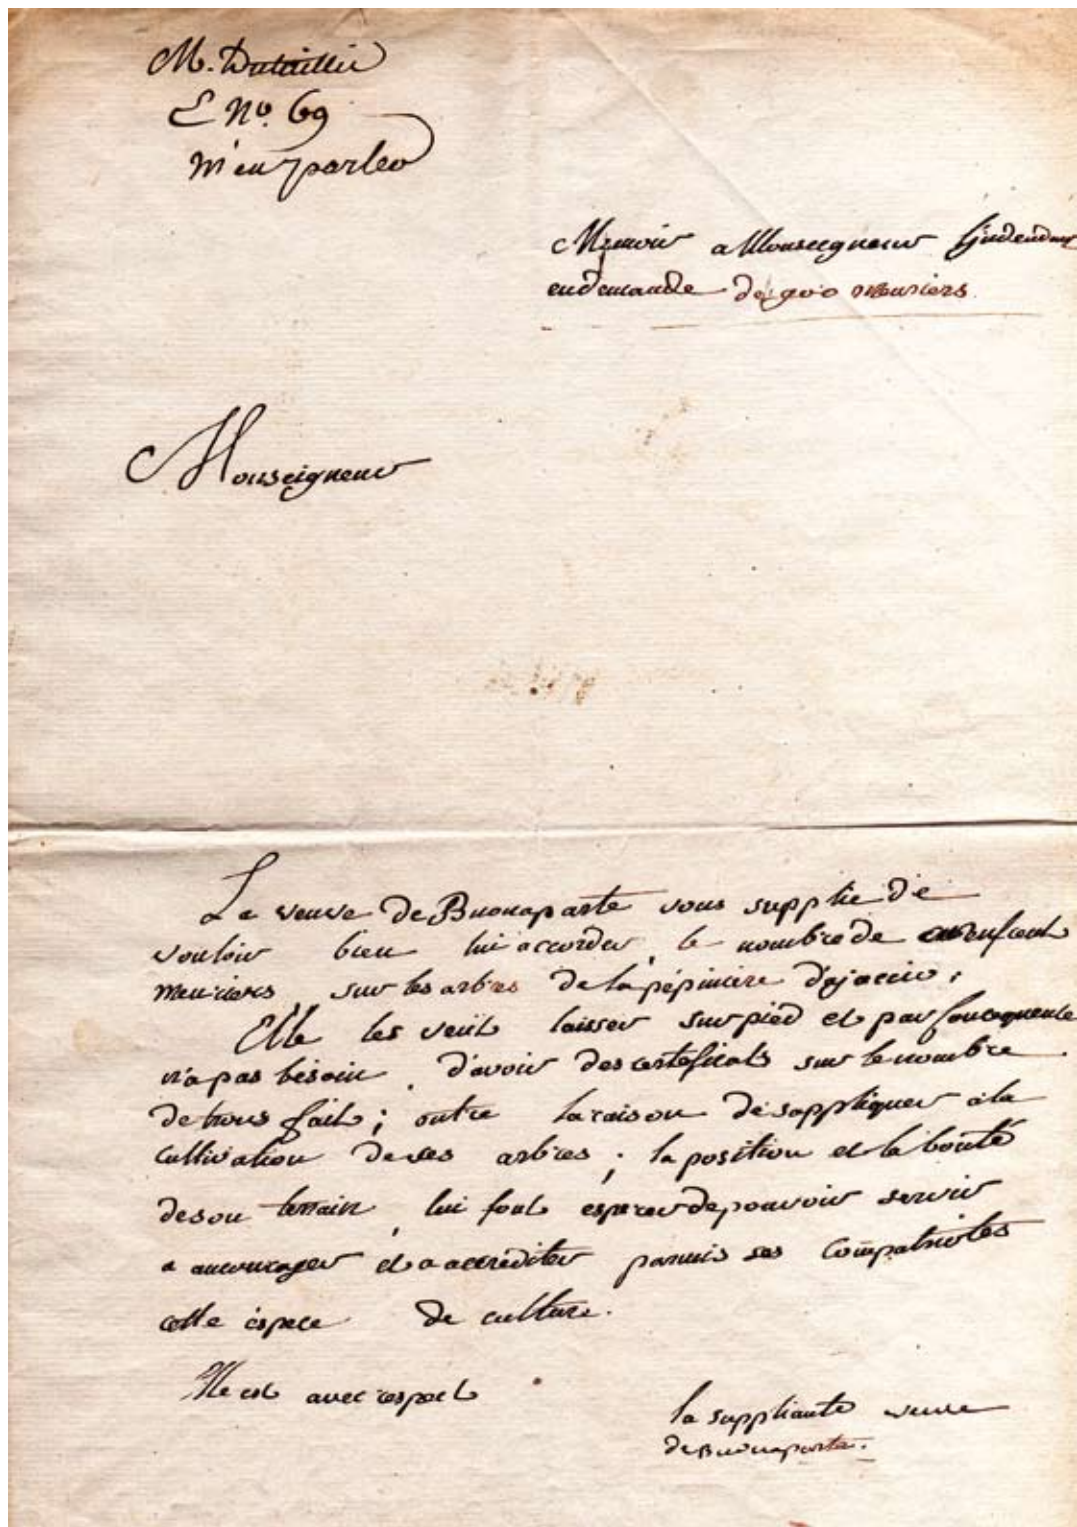 M. Dutaillie
E No. 69
m'en parler
Memoir a Monseigneur l'jntendant
en demande de 900 meuriers
Monseigneur
La veuve de Buonaparte vous supplie de
vouloir bien lui accorder, le nombre de neufcent
meuriers, sur les arbres de la pépiniére d'ajaccio;
Elle les veut laisser sur pied et par conséquente
n'a pas bésoin d'avoir des certeficats sur le nombre
de trous fait; outre la raison de s'appliquer a la
cultivation de ses arbres; la position et la bonté
de son terrain, lui font esperer de pouvoir servir
a ancourager et a accréditer parmis ses compatriotes
cette éspece de culture.
Elle est avec respect
la suppliante veuve
de Buonaparte.